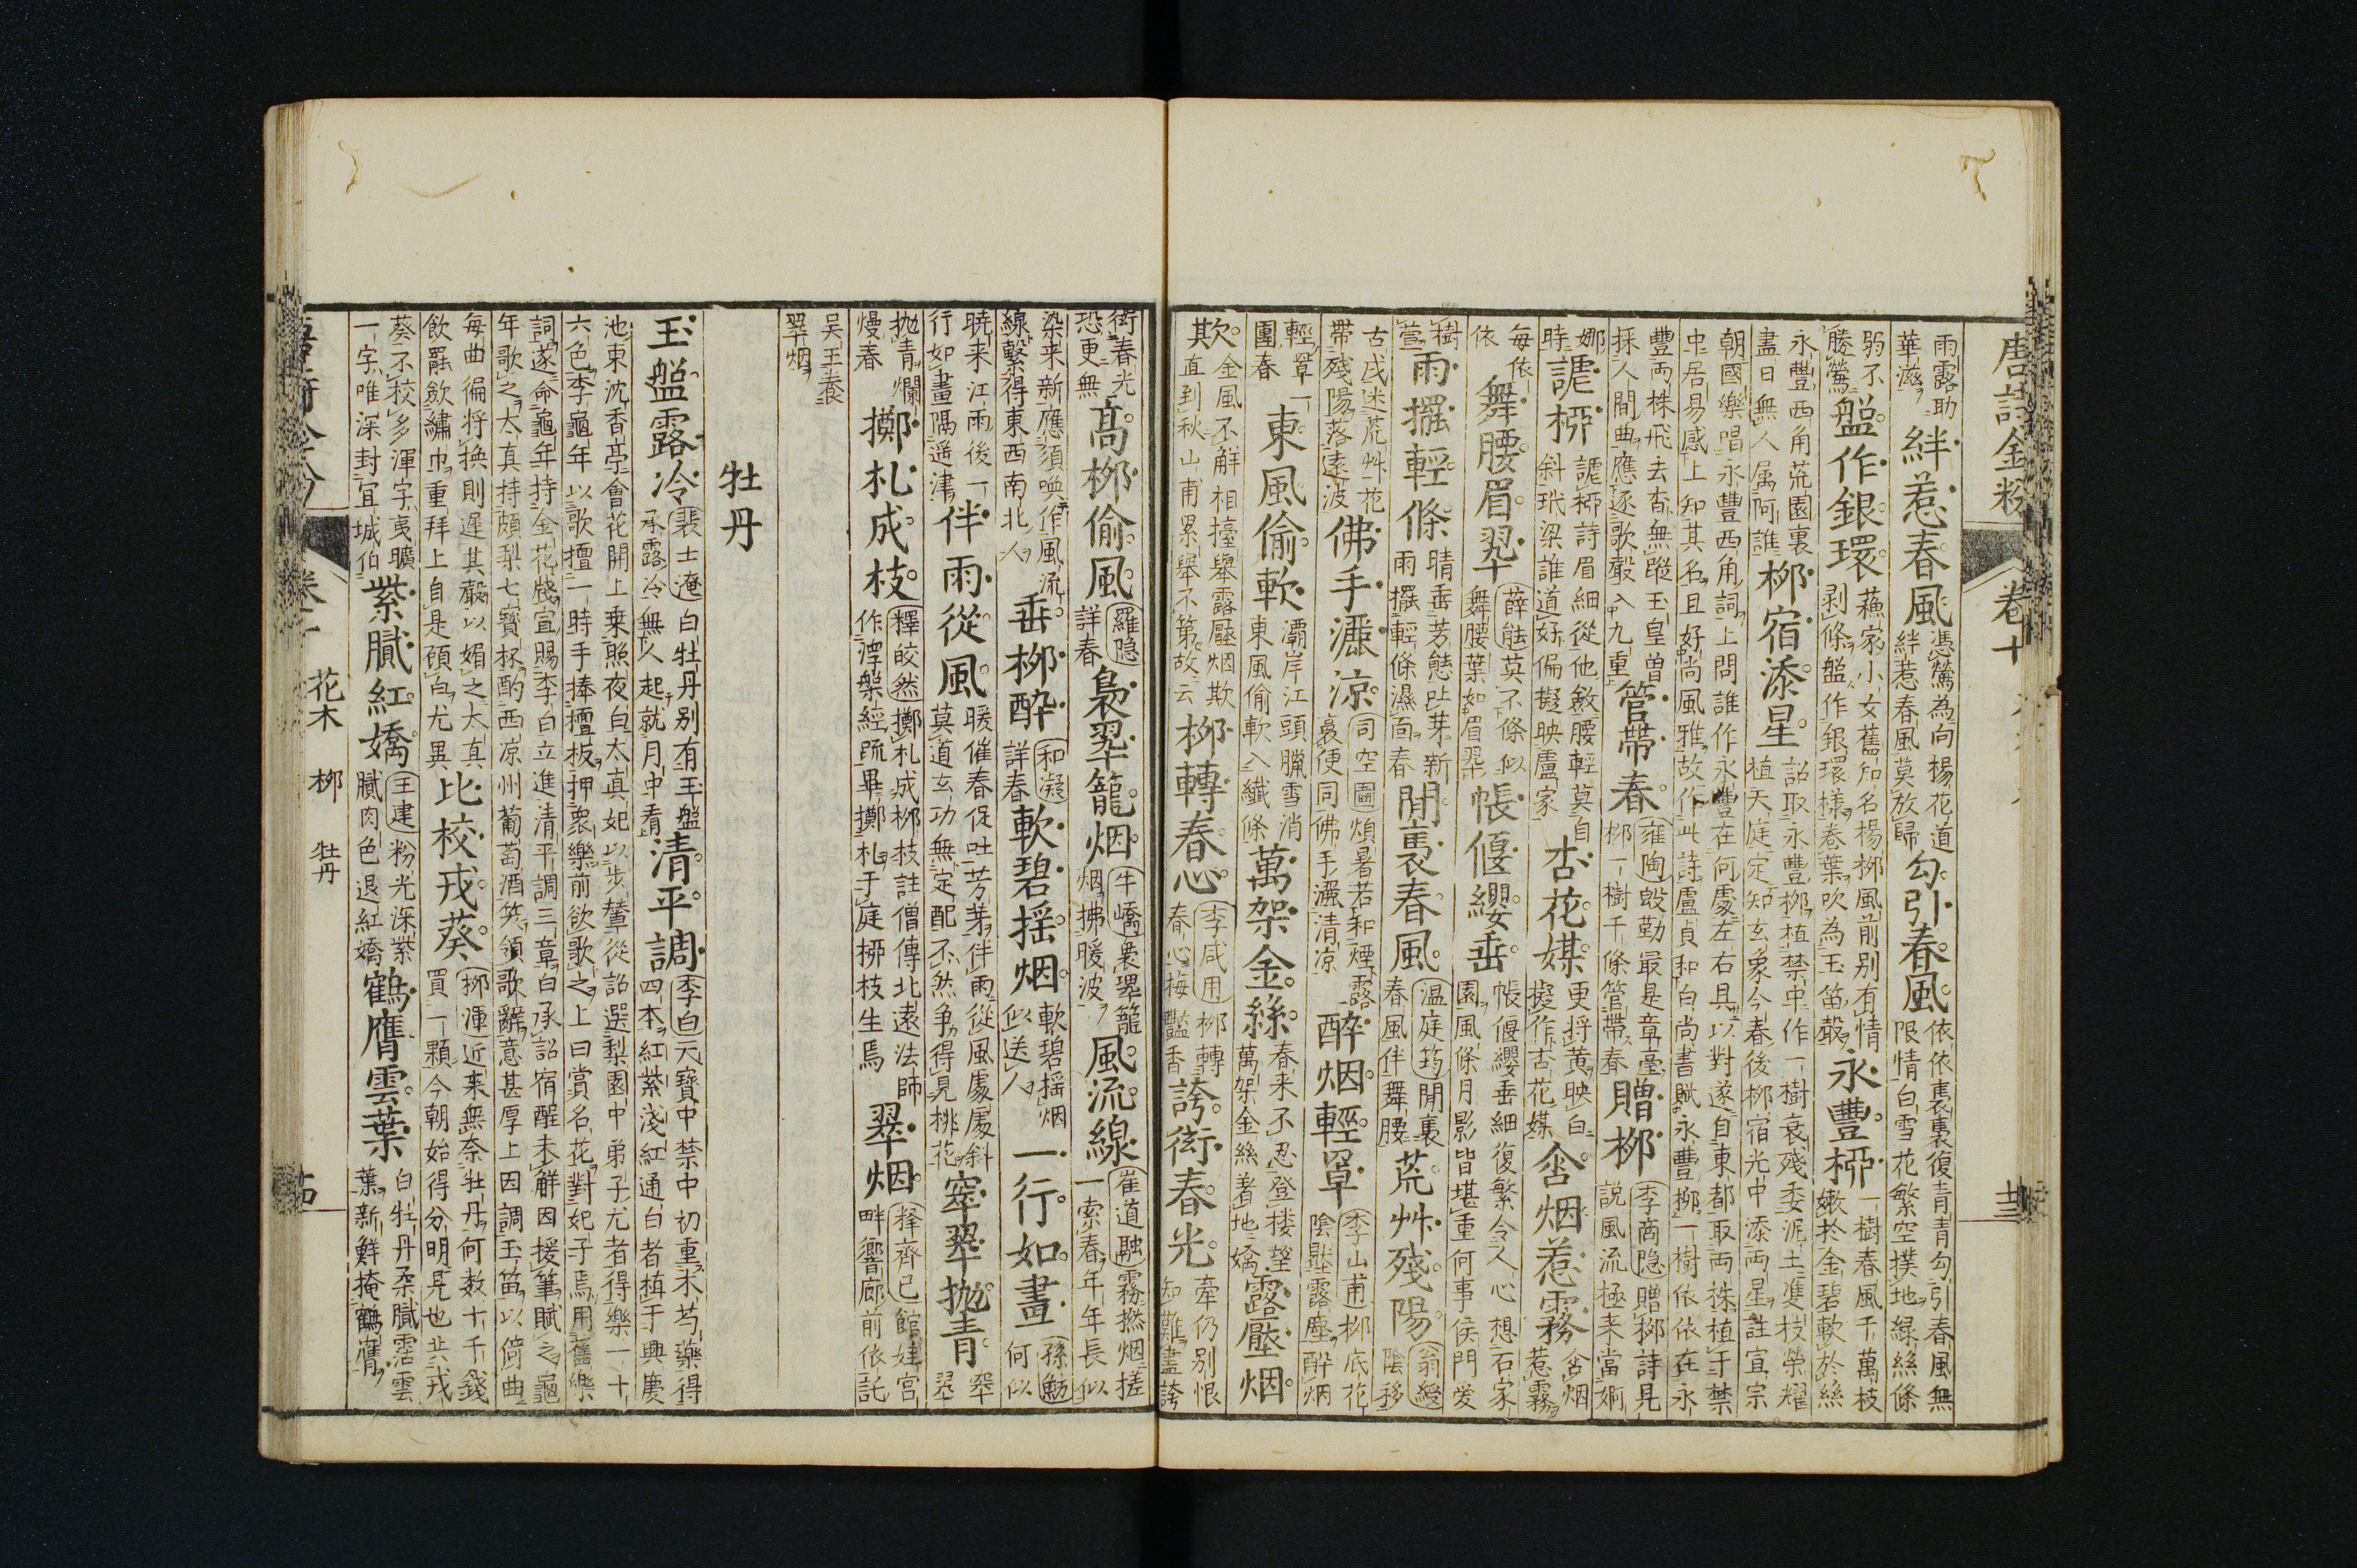 唐詩金粉 卷十
雨露助華滋 絆惹春風 憑鶯為向楊花道絆惹春風莫放歸 勾引春風 依依裊裊復青青勾引春風無限情白雪花繁空撲地緑絲條
弱不勝鶯 盤作銀環 蘓家小女舊知名楊栁風前别有情剥條盤作銀環様巻葉吹為玉笛聲 永豐栁 一樹春風千萬枝嫩於金碧軟於絲
永豐西角荒園裏盡日無人属阿誰 栁宿添星 詔取永豐栁植禁中作一樹衰殘委泥土雙枝榮耀植天庭定知玄象今春後栁宿光中添兩星註宣宗
朝國樂唱永豐西角詞上問誰作永豐在何處左右具以對遂自東都取兩株植于禁中居易感上知其名且好尚風雅故作此詩盧貞和白尚書賦永豐栁一樹依依在永
豐兩株飛去杳無蹤玉皇曽採人間曲應逐歌聲入九重 管帶春 雍陶毁勤最是章臺栁一樹千條管帶春 贈栁 李商隐贈栁詩見説風流極来當婀
娜時 謔栁 謔栁詩眉細從他斂腰輕莫自斜玳梁誰道好偏擬映盧家 杏花媒 更捋黄映白擬作杏花媒 含烟惹霧 含烟惹霧
每依依 舞腰眉翠 薛能莫不條似舞腰葉如眉翠 帳偃纓垂 帳偃纓垂細復繁令人心想石家園風條月影皆堪重何事侯門愛
樹萱 雨擺輕條 晴垂芳態吐芽新雨擺輕條濕面春 閒裏春風 温庭筠閒裏春風伴舞腰 荒艸殘陽 翁綬陰移
古戍迷荒艸花帶殘陽落遠波 佛手灑凉 司空圖煩暑若和煙露裛便同佛手灑清凉 醉烟輕罩 李山甫栁底花陰壓露塵醉烟
輕罩一團春 東風偷軟 灞岸江頭臘雪消東風偷軟入纖條 萬架金絲 春来不忍登楼望萬架金絲著地嬌 露壓烟
欺 金風不解相擡舉露壓烟欺直到秋山甫累舉不第故云 栁轉春心 李咸用栁轉春心梅艷香 誇衒春光 牽仍别恨知難盡誇
衒春光恐更無 高栁偷風 羅隐詳春 裊翠籠烟 牛嶠裊翠籠烟拂暖波 風流線 崔道融霧撚烟搓一索春年年長似
染来新應須喚作風流線繋得東西南北人 垂栁醉 和凝詳春 軟碧揺烟 軟碧揺烟似送人 一行如畫 孫魴何似
暁来江雨後一行如畫隔遥津 伴雨從風 暖催春促吐芳芽伴雨從風處處斜莫道玄功無定配不然争得見桃花 窣翠抛青 窣翠
抛青爛熳春 擲札成枝 釋皎然擲札成栁枝註僧傳北遠法師作湼槃經疏畢擲札于庭栁枝生焉 翠烟 釋齊已館娃宮畔響廊前依託
吴王養翠烟
牡丹
玉盤露冷 裴士淹白牡丹别有玉盤承露冷無人起就月中看 清平調 李白天寶中禁中初重木芍藥得四本紅紫淺紅通白者植于興慶
池東沈香亭會花開上乗照夜白太真妃以步輦從詔選梨園中弟子尤者得樂一十六色李龜年以歌擅一時手捧檀板押衆樂前欲歌之上曰賞名花對妃子焉用舊樂
詞遂命龜年持金花牋宣賜李白立進清平調三章白承詔宿酲未觧因援筆賦之龜年歌之太真持頗梨七寳杯酌西凉州葡萄酒笑領歌辭意甚厚上因調玉笛以倚曲
每曲徧将換則遲其聲以媚之太真飲罷斂繡巾重拜上自是顧白尤異 比校戎葵 栁渾近来無奈牡丹何数十千錢買一顆今朝始得分明見也共戎
葵不校多渾字夷曠一字唯深封宜城伯 紫膩紅嬌 王建粉光深紫膩肉色退紅嬌 鶴膺雲葉 白牡丹柔膩霑雲葉新鮮掩鶴膺
卷十 花木 栁 牡丹